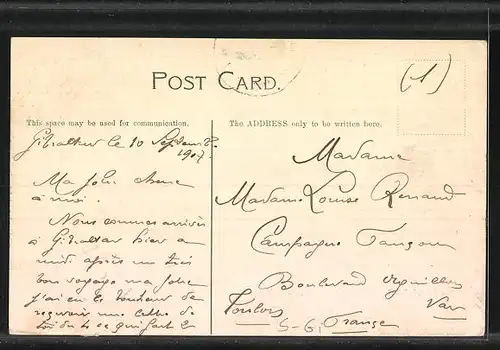 POST CARD.
(1)
This space may be used for communication.
The ADDRESS only to be written here.
Gibraltar le 10 Septembre
1907
Ma jolie
à moi.
Nous sommes arrivés
à Gibraltar hier a
midi après un très
bon voyage ma jolie
j'ai eu le bonheur de
recevoir une lettre de
toi du 4 ce qui fait
Madame
Madame Louise Renaud
Campagne
Boulevard
Toulon
Var
5-61
France